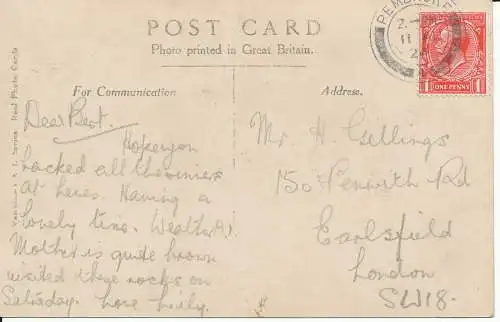 POST CARD
Photo printed in Great Britain.
For Communication
Address.
PEMBROKE
ONE PENNY
Dear Bert.
Hope you
backed all the winners
at
Having a
lovely time. Weather A1.
Mother is quite brown
visited these rocks on
Saturday. Love Lily.
Mr H. Gillings
150 Penwith Rd
Earlsfield
London
SW18.
Real Photo Cards